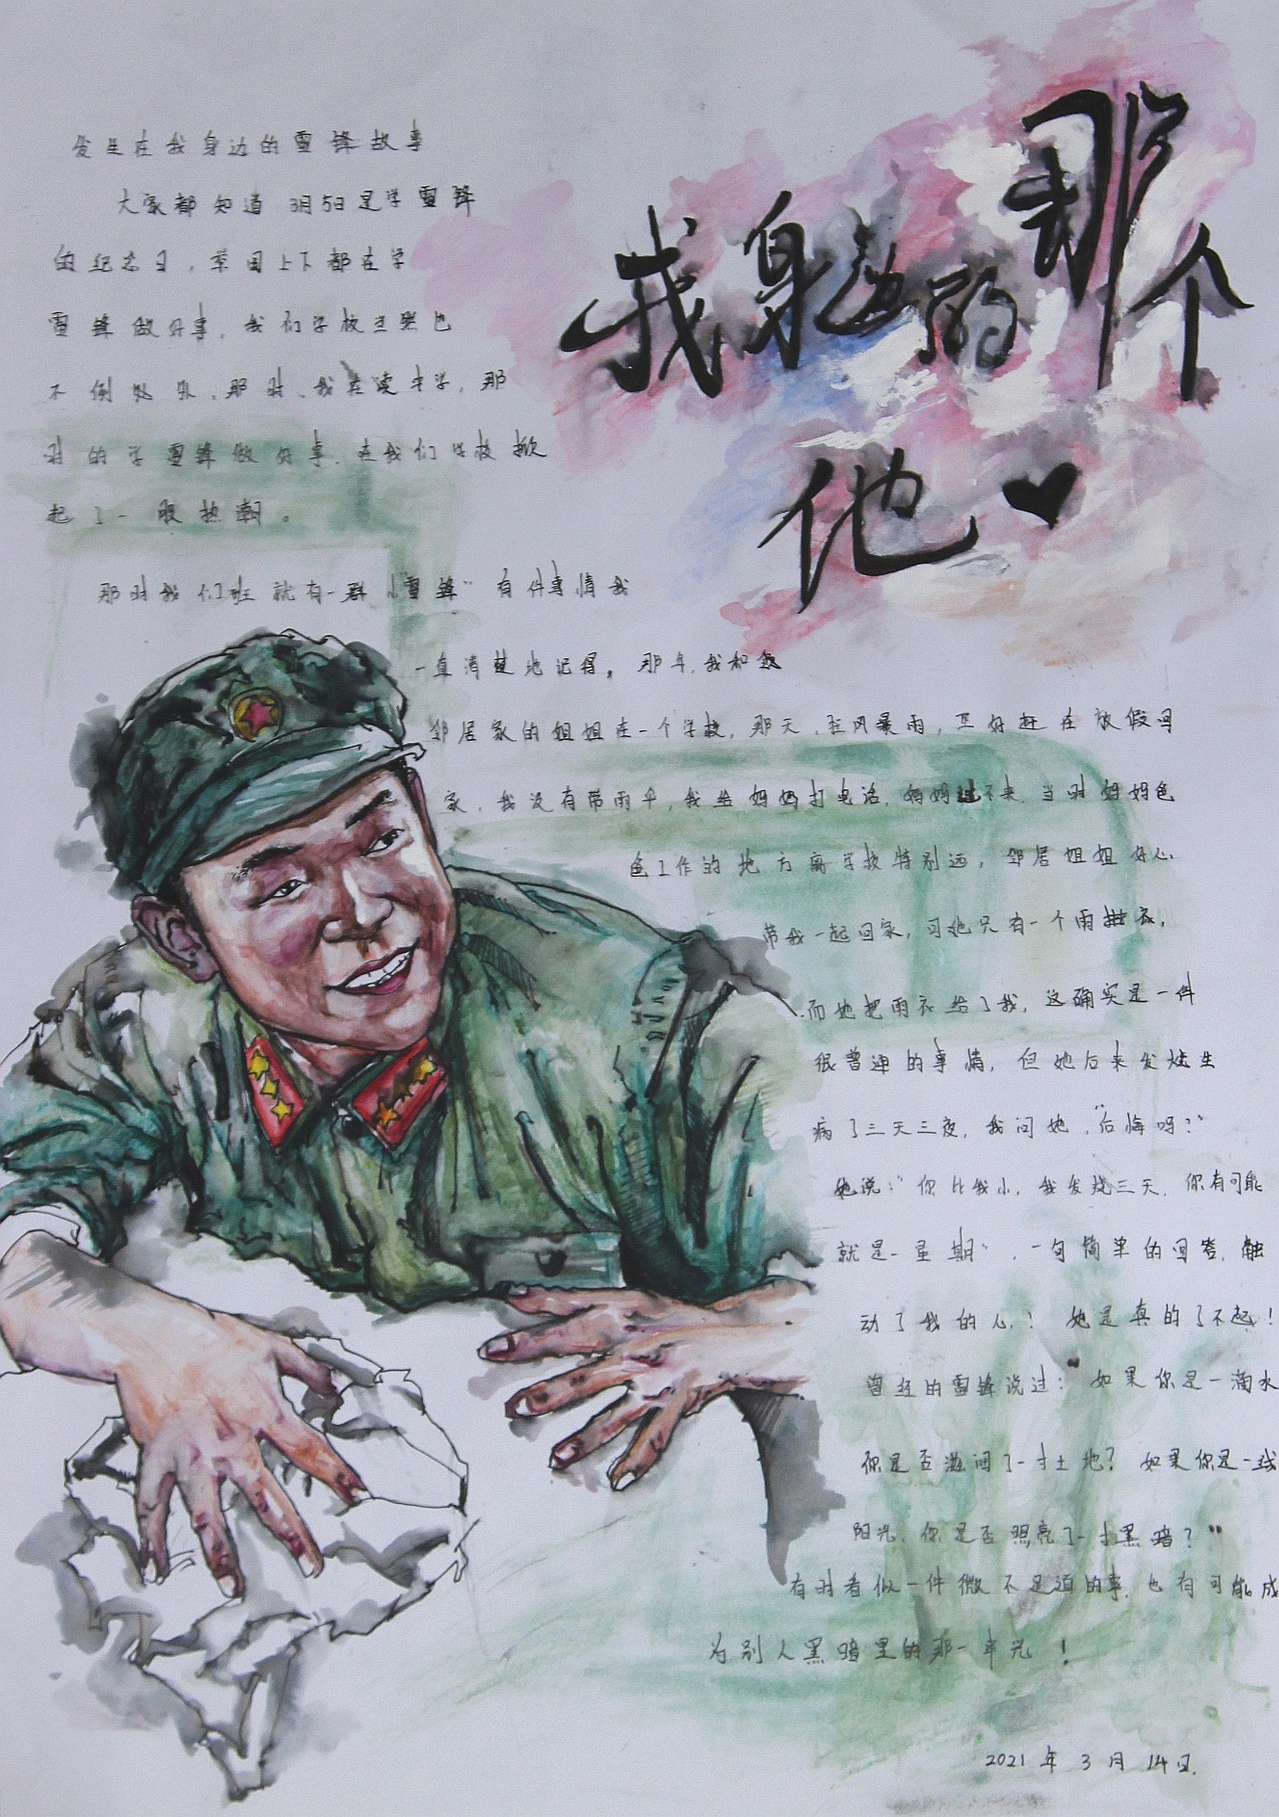 我身边的那个
他
发生在我身边的雷锋故事
大家都知道3月5日是学雷锋
的纪念日，举国上下都在学
雷锋做好事，我们学校当然也
不例处外，那时，我在读中学，那
时的学雷锋做好事，在我们学校掀
起了一股热潮。
那时我们班就有一群小“雷锋”有件事情我
一直清楚地记得，那年，我和我
邻居家的姐姐在一个学校，那天，狂风暴雨，正好赶在放假回
家，我没有带雨伞，我给妈妈打电话，妈妈进不来，当时妈妈色
色工作的地方离学校特别远，邻居姐姐好心
带我一起回家，可她只有一个雨衣，
而她把雨衣给了我，这确实是一件
很普通的事情，但她后来发烧生
病了三天三夜，我问她，“后悔吗？”
她说：“你比我小，我发烧三天，你有可能
就是一星期”，一句简单的回答，触
动了我的心！她是真的了不起！
曾经的雷锋说过：“如果你是一滴水
你是否滋润了一寸土地？如果你是一线
阳光，你是否照亮了一寸黑暗？”
有时看似一件微不足道的事，也有可能成
为别人黑暗里的那一束光！
2021年3月14日